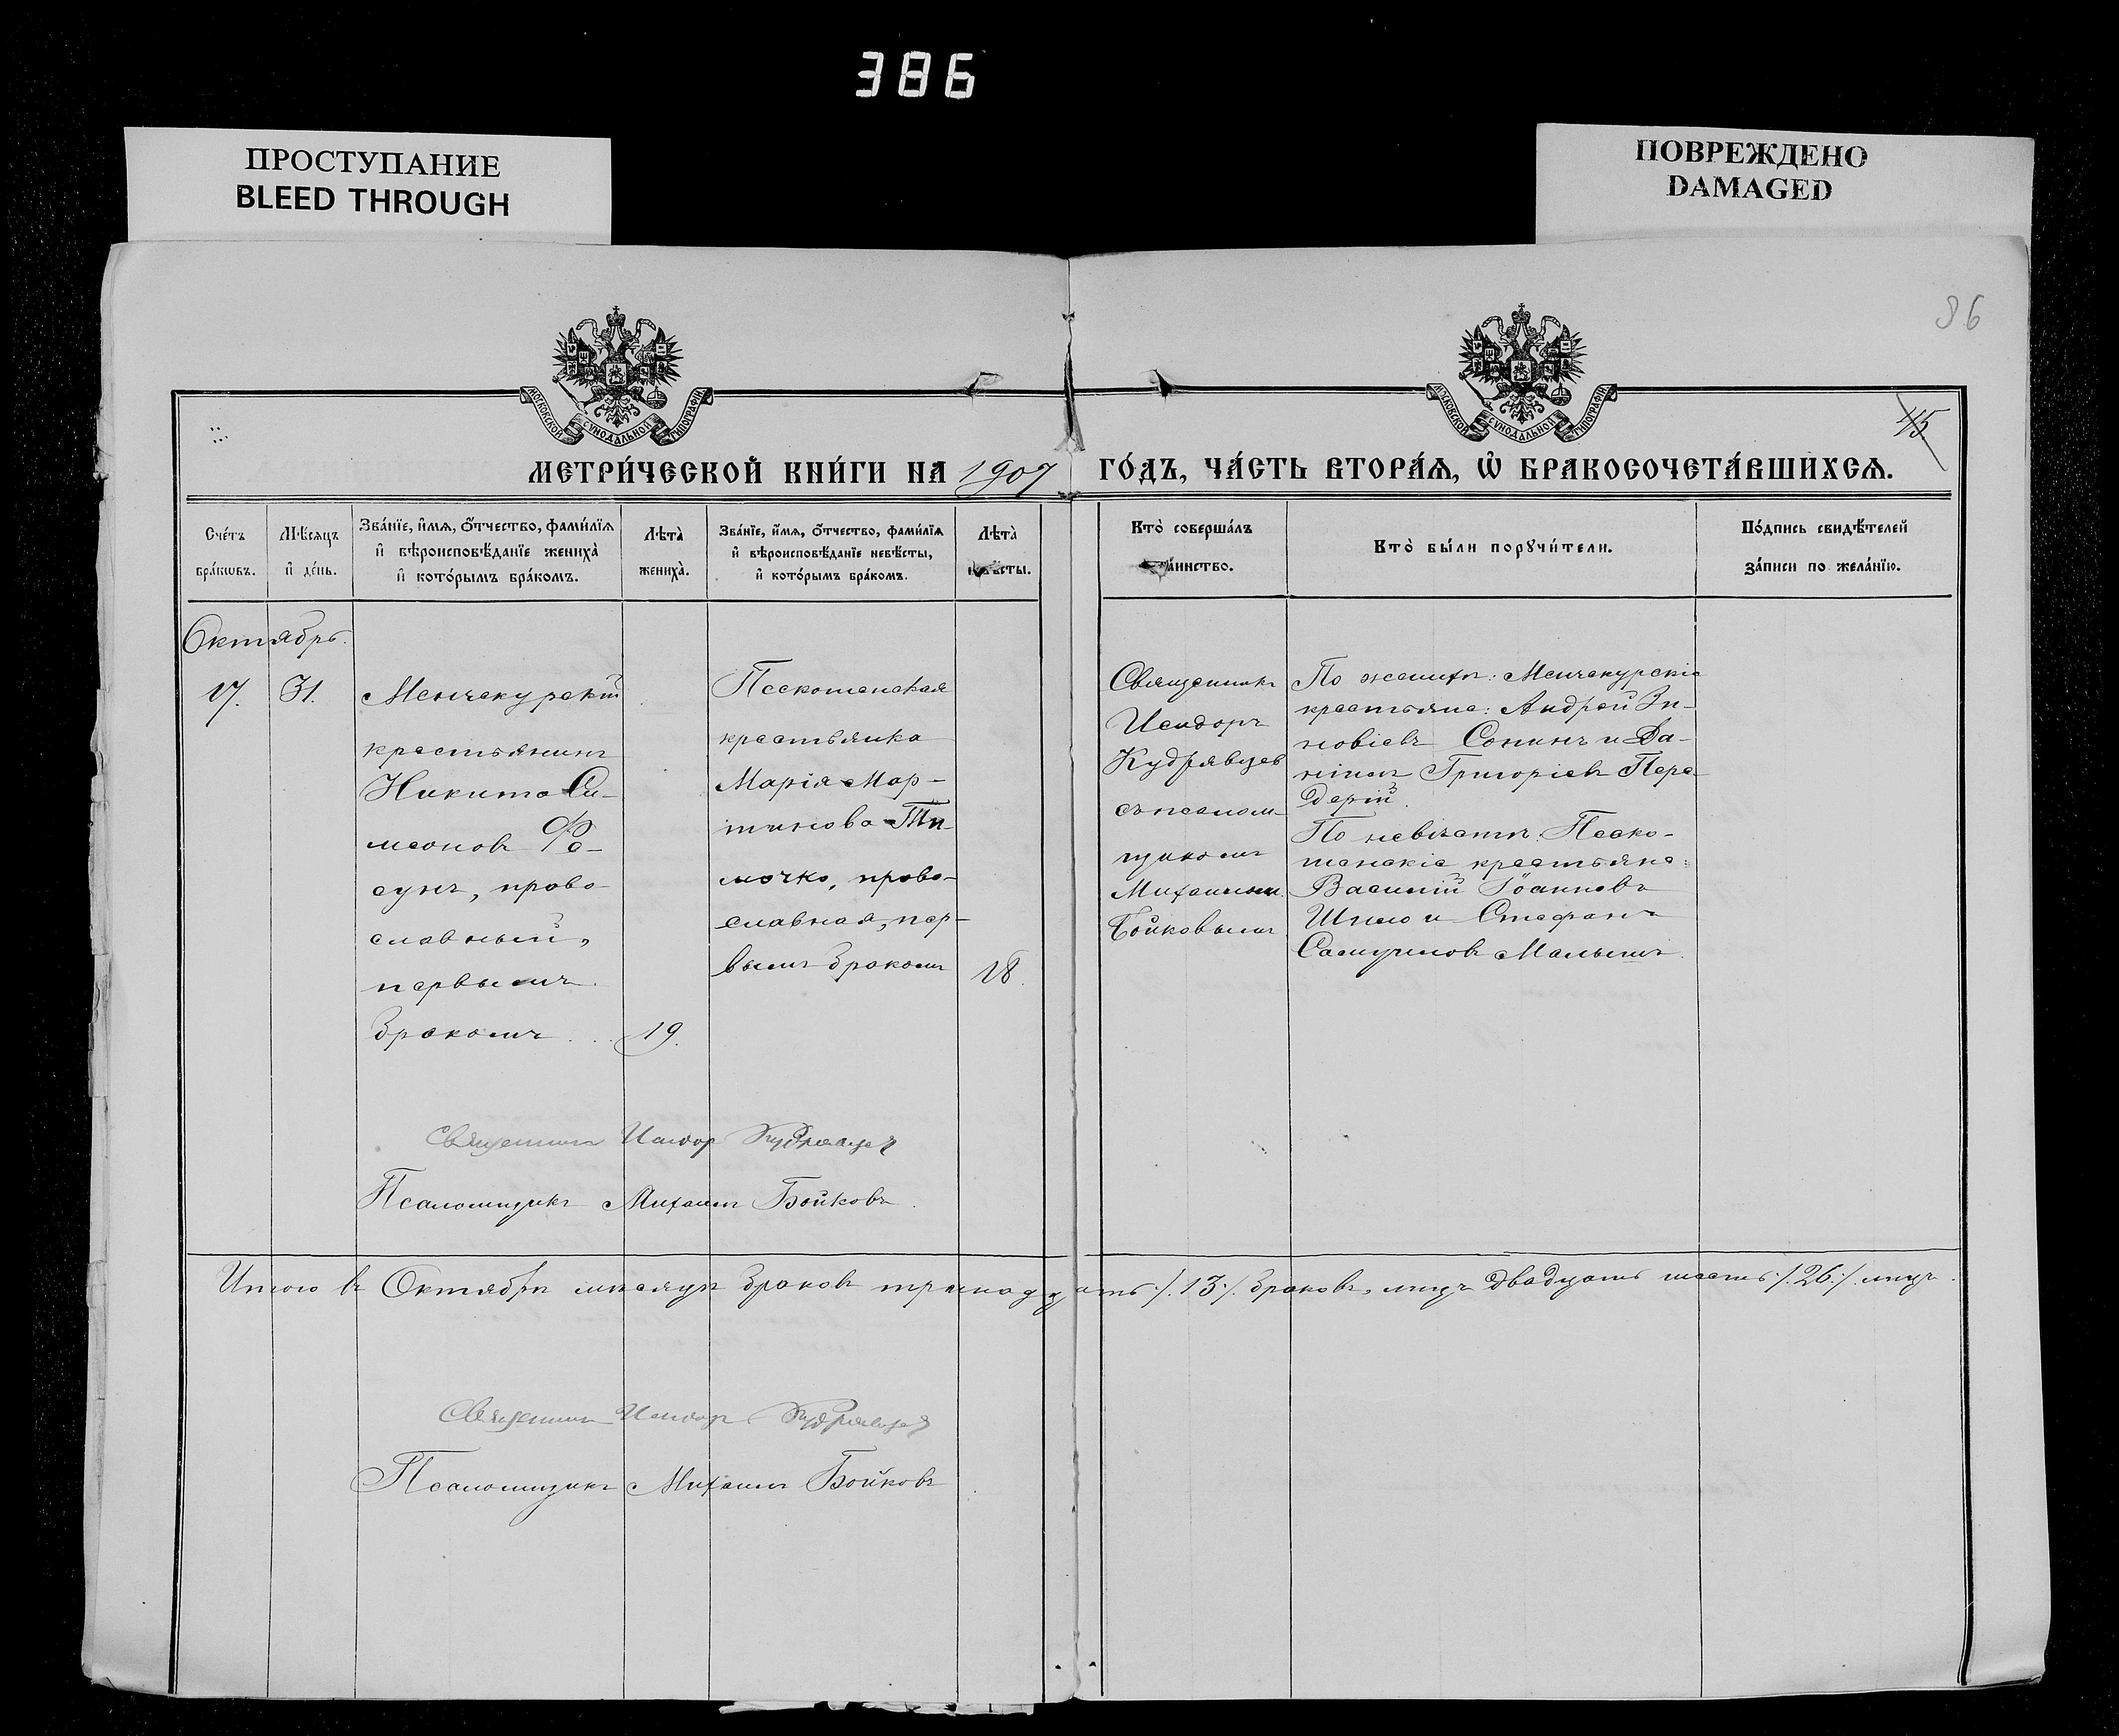 386
ПРОСТУПАНИЕ
BLEED THROUGH
ПОВРЕЖДЕНО
DAMAGED
86
МОСКОВСКОЙ СУНОДАЛЬНОЙ ТИПОГРАФІИ
МОСКОВСКОЙ СУНОДАЛЬНОЙ ТИПОГРАФІИ
45
МЕТРИ́ЧЕСКОЙ КНИ́ГИ НА 1907 ГО́ДЪ, ЧА́СТЬ ВТОРА́Ѧ, Ѿ БРАКОСОЧЕТА́ВШИХСѦ.
Сче́тъ
бра́кѡвъ.
Мѣ́сяцъ
и҆ де́нь.
Зва́нїе, и҆́мѧ, ѻ҆́тчество, фами́лїѧ
и҆ вѣроисповѣ́данїе жениха̀
и҆ кото́рымъ бра́комъ.
Лѣта̀
жениха̀.
Зва́нїе, и҆́мѧ, ѻ҆́тчество, фами́лїѧ
и҆ вѣроисповѣ́данїе невѣ́сты,
и҆ кото́рымъ бра́комъ.
Лѣта̀
невѣ́сты.
Кто̀ соверша́лъ
та́инство.
Кто̀ бы́ли порꙋчи́тели.
По́дпись свидѣ́телей
за́писи по жела́нїю.
Октябрь.
17.
31.
Менчекурскій
крестьянинъ
Никита Си-
меоновъ Фе-
сунъ, право-
славный,
первымъ
бракомъ
19.
Пескотенская
крестьянка
Марія Мар-
тинова Ти-
мочко, право-
славная, пер-
вымъ бракомъ
18.
Священникъ
Исидоръ
Кудрявцев
съ псалом-
щикомъ
Михаиломъ
Бойковымъ
По женихѣ: Менчекурскіе
крестьяне: Андрей Зи-
новіевъ Сопинъ и Да-
ніилъ Григоріевъ Пере-
дерій.
По невѣстѣ: Песко-
тенскіе крестьяне:
Василій Іоанновъ
Шило и Стефанъ
Самуиловъ Малышъ.
Священникъ Исидор Кудрявцев
Псаломщикъ Михаилъ Бойковъ.
Итого въ Октябрѣ мѣсяцѣ браковъ тринадцать ./. 13 ./. браковъ, лицъ двадцать шесть ./. 26 ./. лицъ.
Священникъ Исидор Кудрявцев
Псаломщикъ Михаилъ Бойковъ